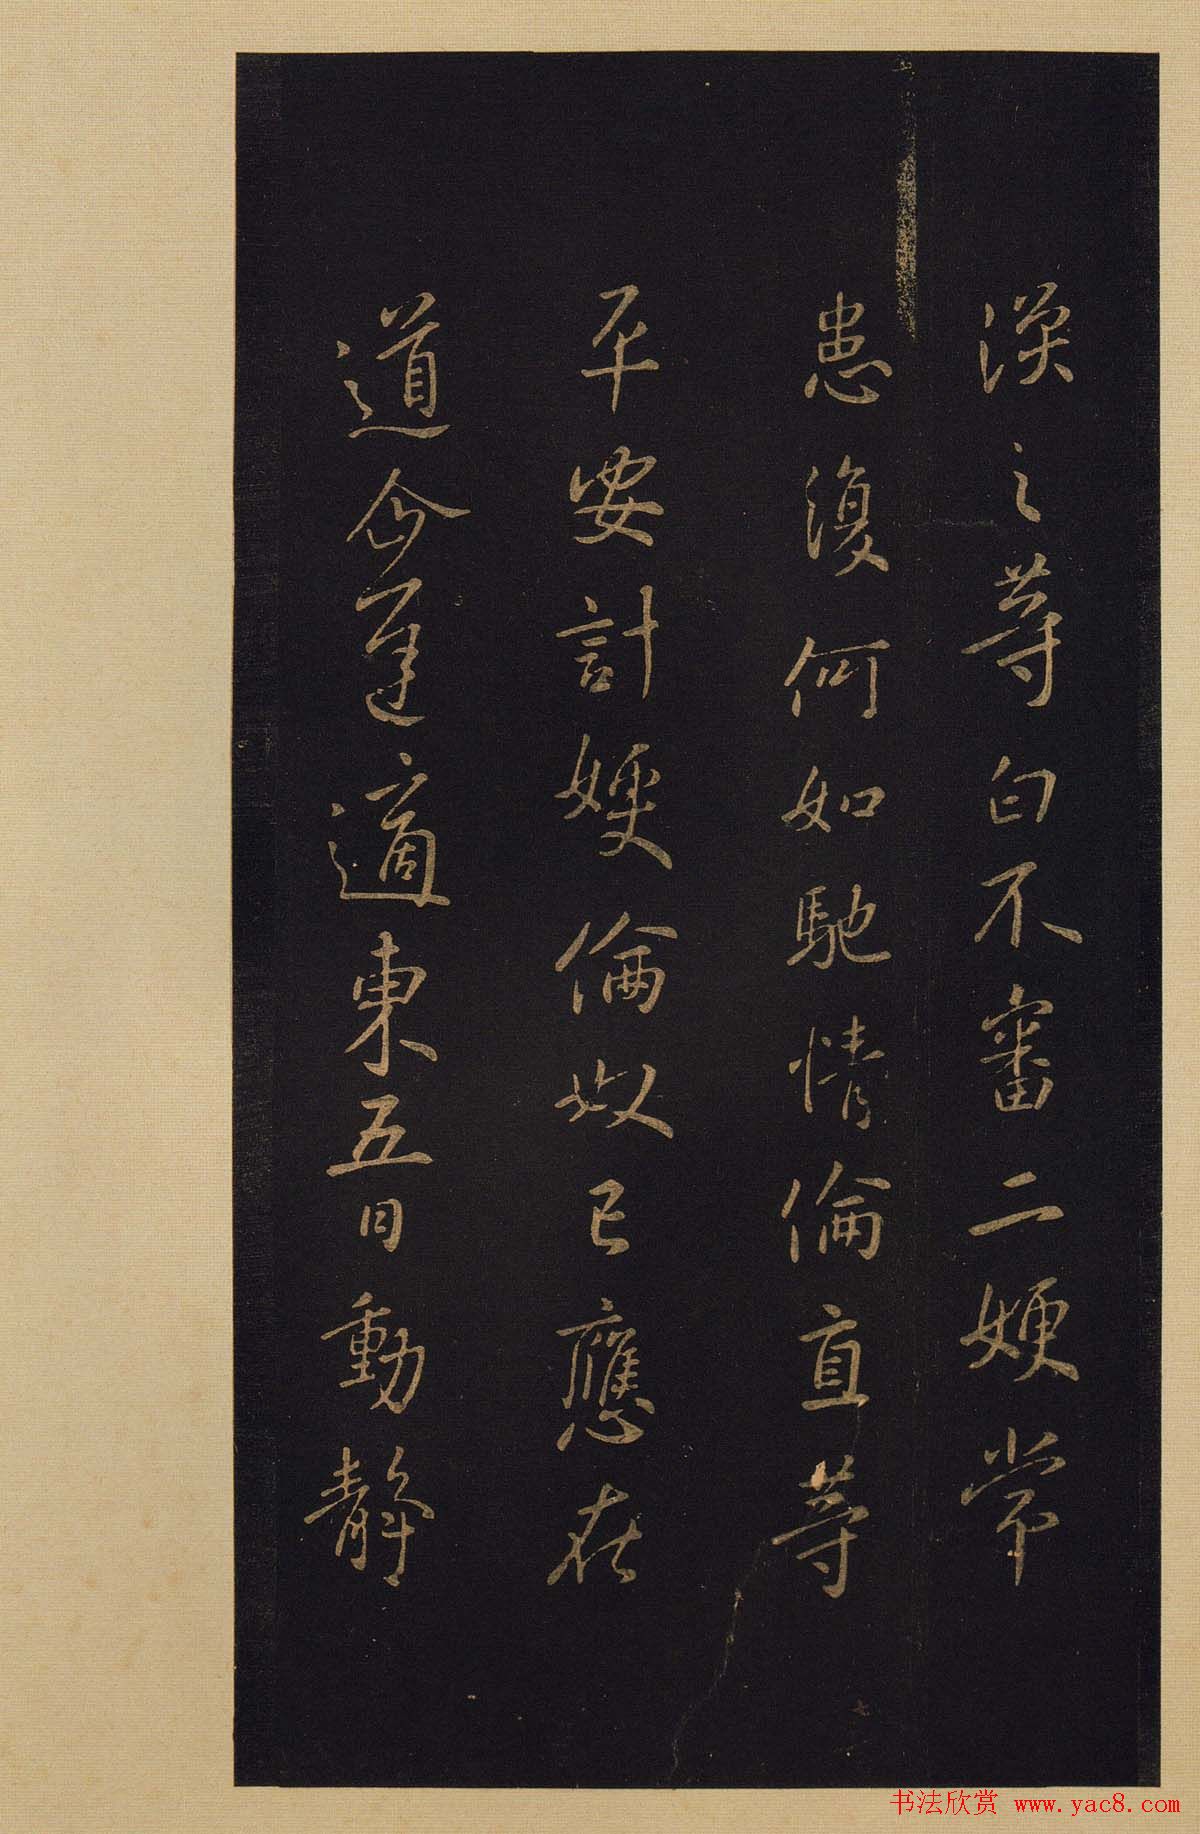 渙之等白不審二嫂常
患復何如馳情倫直等
平安計嫂倫奴已應在
道企遲適東五日動靜
书法欣赏 www.yac8.com